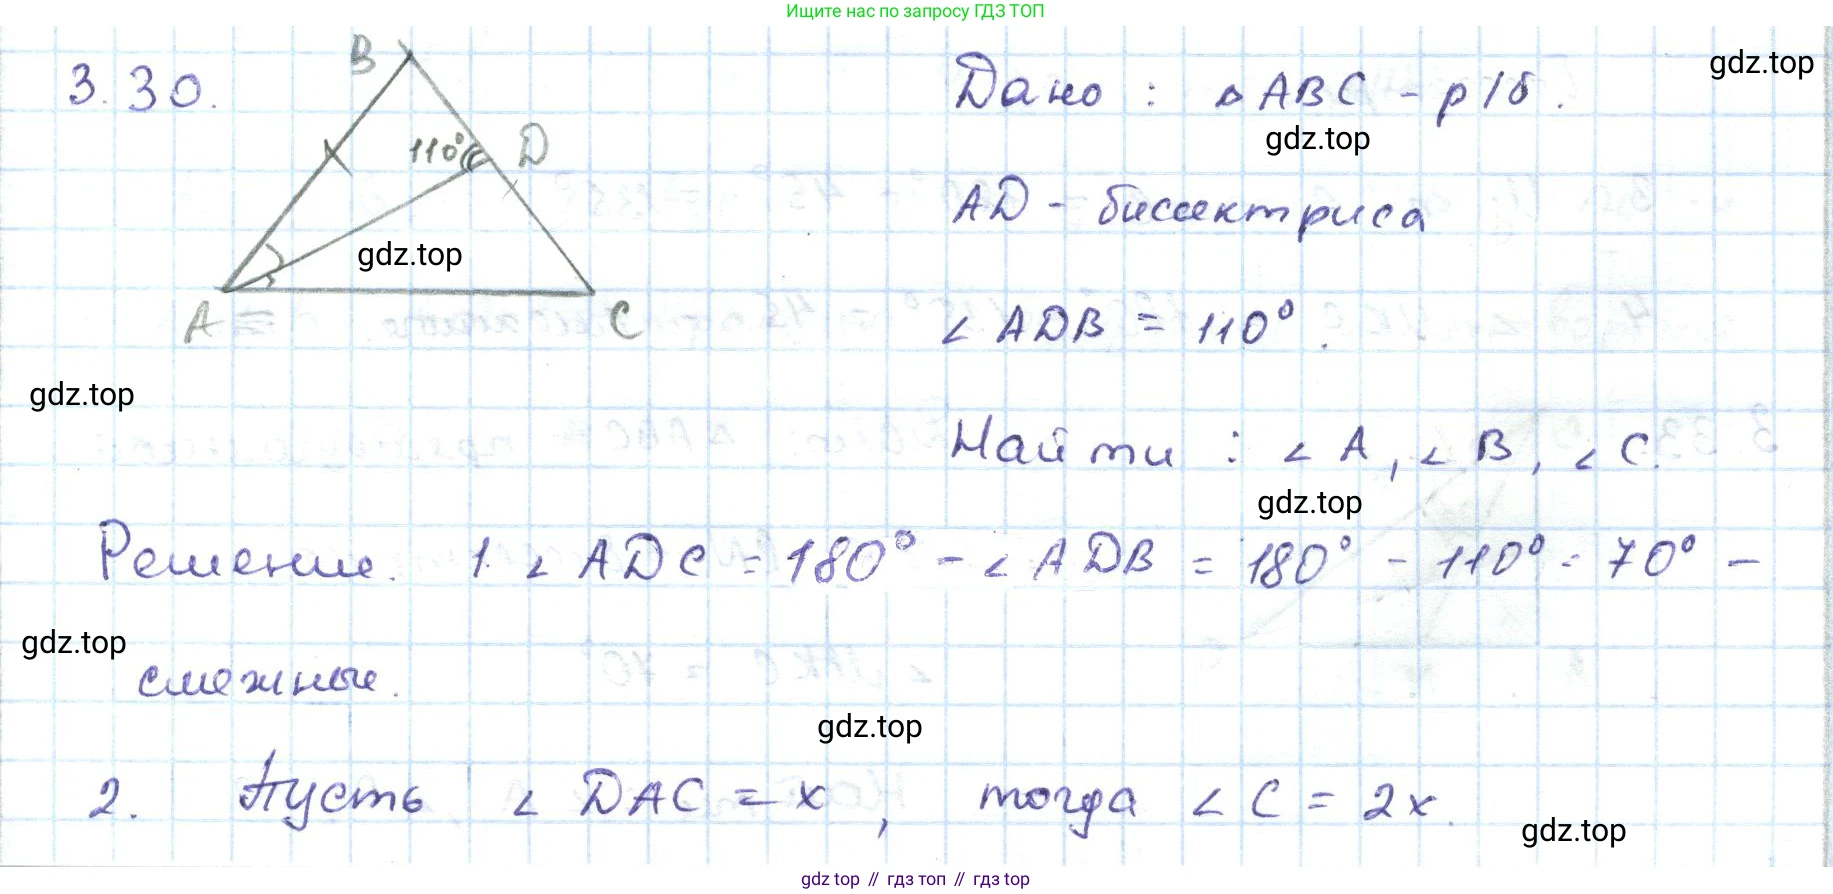 Ищите нас по запросу ГДЗ ТОП
3.30.
B
110°
D
A
C
Дано : △ ABC - р/б.
gdz.top
gdz.top
AD - биссектриса
gdz.top
∠ ADB = 110°.
gdz.top
Найти : ∠ A, ∠ B, ∠ C.
gdz.top
Решение. 1. ∠ ADC = 180° - ∠ ADB = 180° - 110° = 70° -
gdz.top
смежные.
gdz.top
2. Пусть ∠ DAC = x, тогда ∠ C = 2x.
gdz.top
gdz top // гдз топ // гдз top